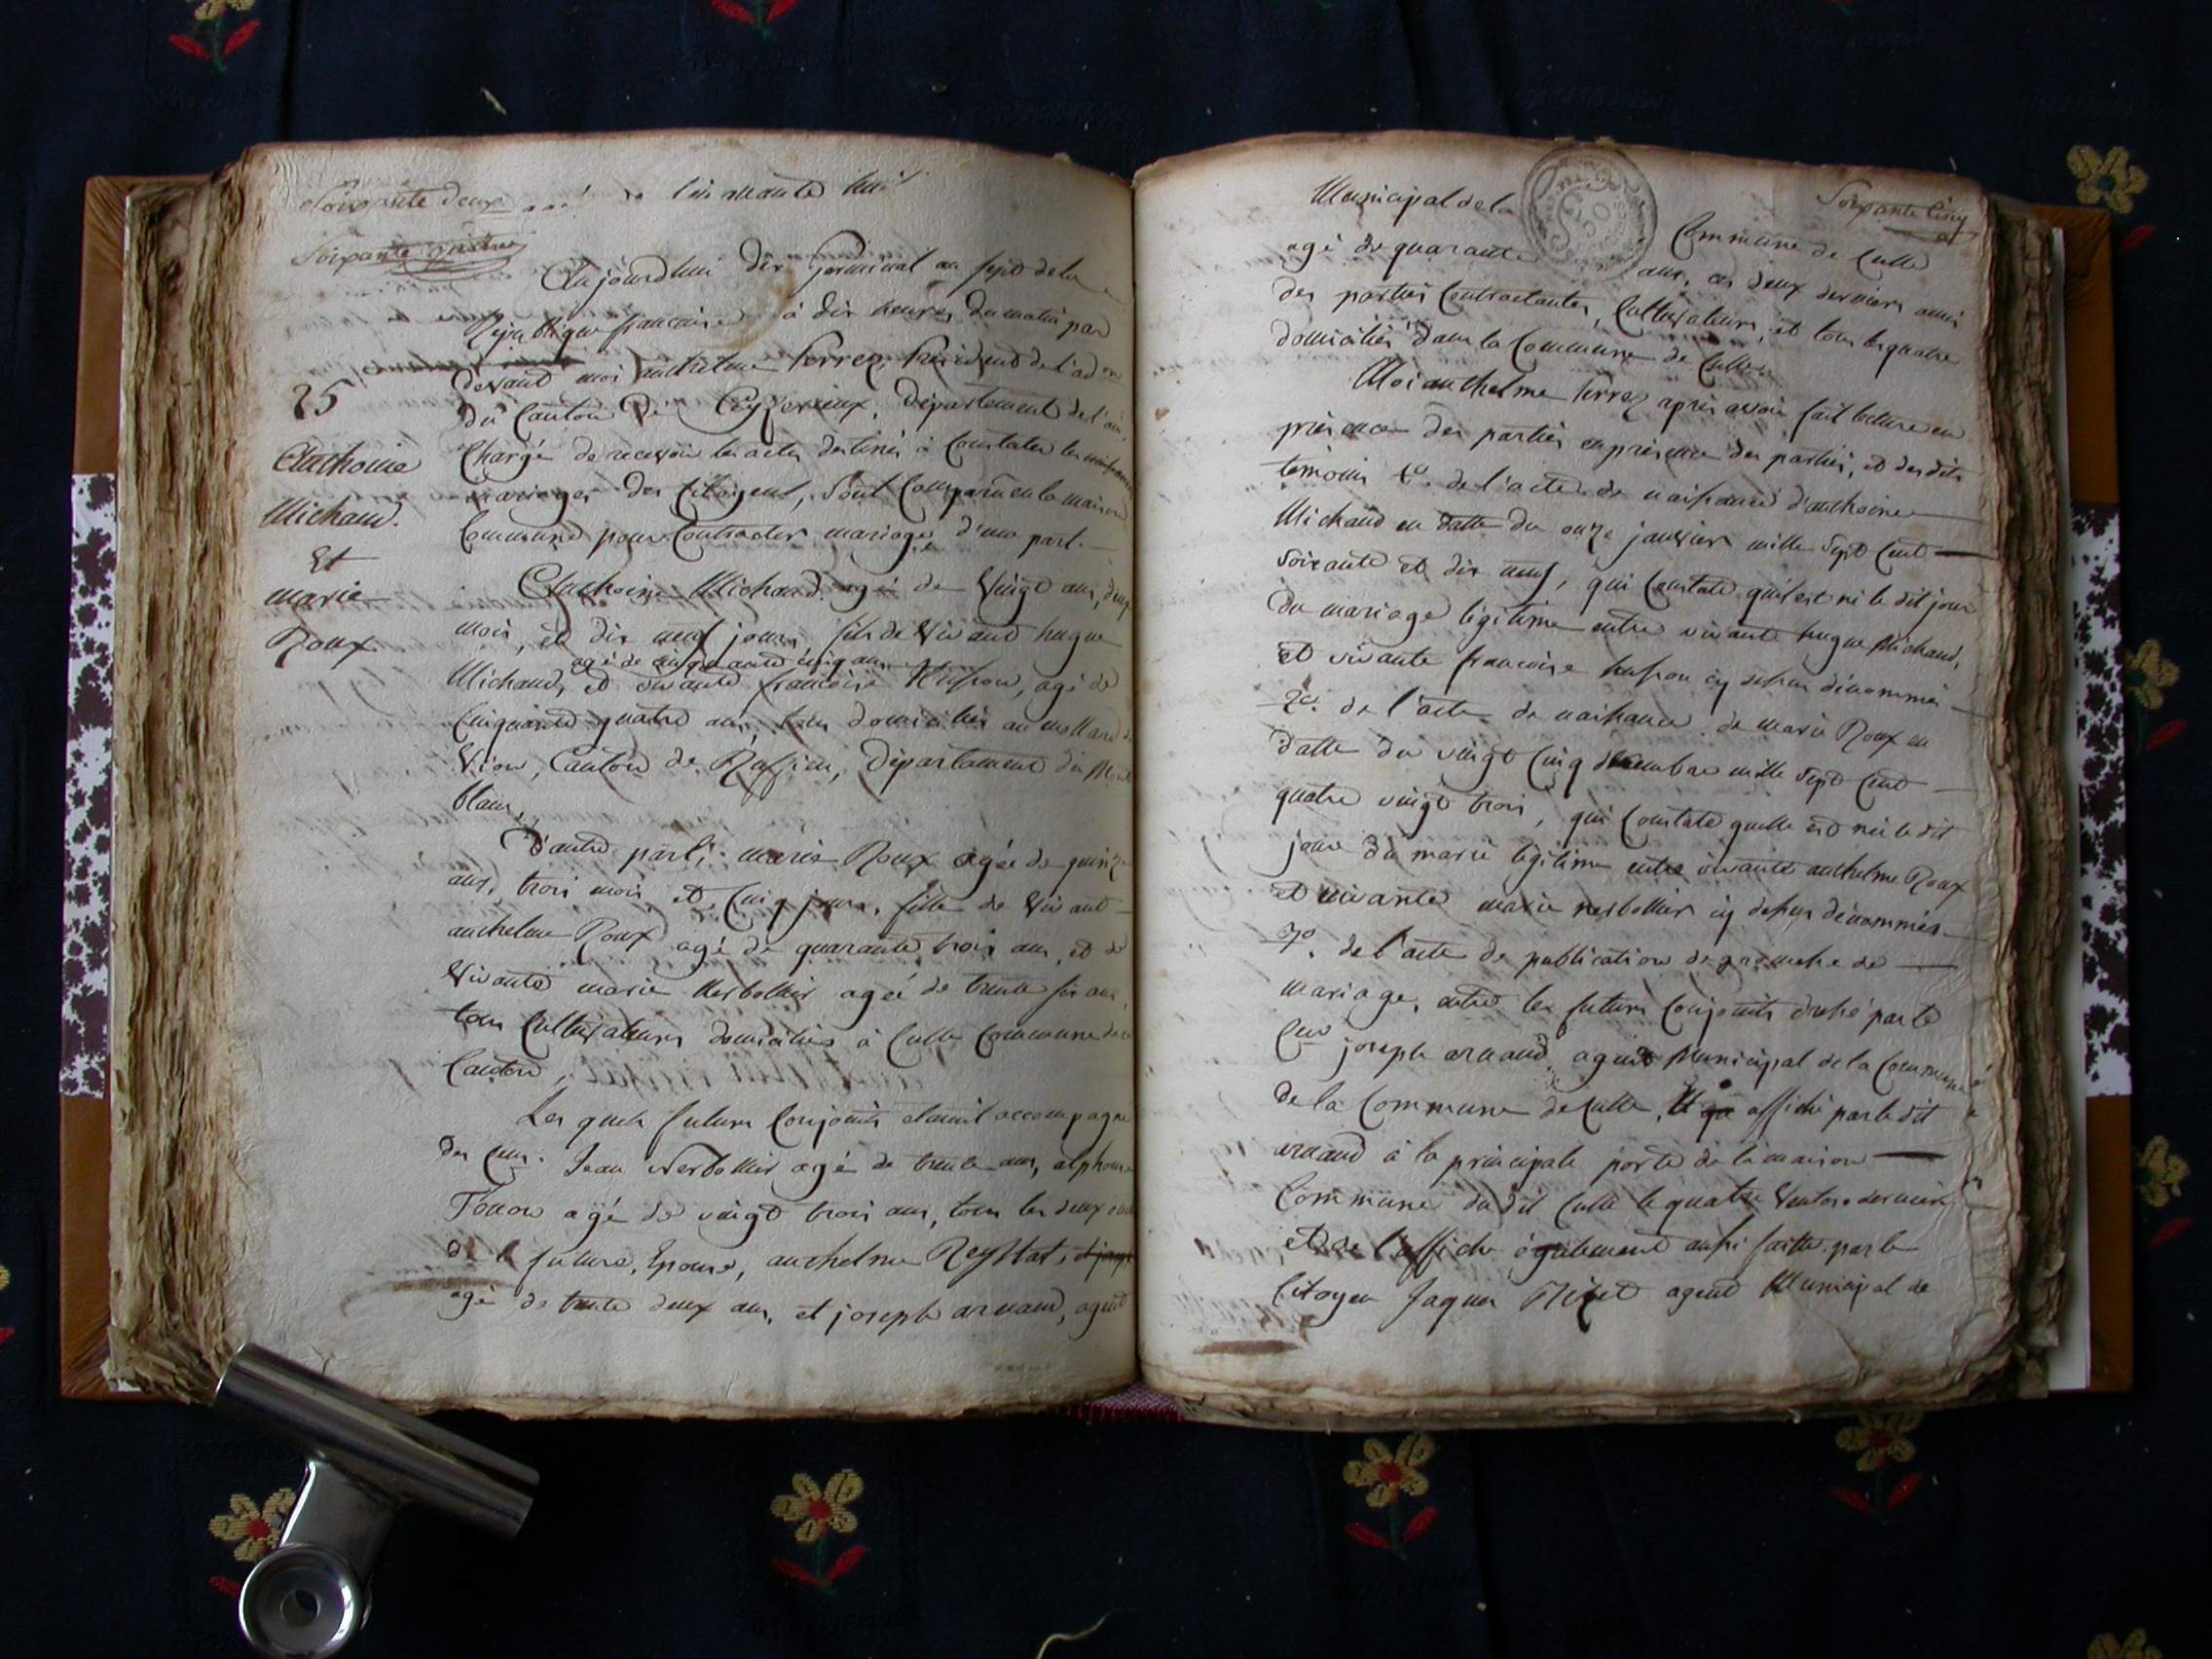 Soixante deux
Cinquante huit
Soixante quatre
Aujourdhui dix germinal an sept de la
Republique francaise à dix heures du matin par
devant moi anthelme ferrez, President de l'ad on
du Canton de Ceyzerieux, Département de l'ain,
Chargé de recevoir les actes destinés à Constater les naissances
mariages des Citoyens, sont Comparu en la maison
Commune pour Contracter mariage, d'une part.
25
Anthoine
Michaud.
Et
marie
Roux
Anthoine Michaud agé de Vingt ans, deux
mois, et dix neuf jours fils de Vivant hugue
agé de cinquante cinq ans
Michaud, et vivante francoise husson, agé de
Cinquante quatre ans, tous domiciliés au mollard de
Vion, Canton de Ruffieu, Département du Mont
blanc,
D'autre part, marie Roux agée de quinze
ans, trois mois et Cinq jours, fille de Vivant
anthelme Roux agé de quarante trois ans, et de
Vivante marie Nerbollier agée de trente six ans,
tous Cultivateurs domiciliés à Culle Commune de ce
Canton,
Les quels futurs Conjoints etaint accompagné
des Cens. Jean Nerbollier agé de trente ans, alphonse
agé de vaigt trois ans, tous les deux
de la future, Epouse, anthelme Reystat,
agé de trente deux ans, et joseph arnaud, agent
Municipal de la Commune de Culle
Soixante Cinq
agé de quarante ans, ces deux derniers amis
des parties Contractantes, Cultivateurs, et tous les quatre
domiciliés dans la Commune de Culle.
Moi anthelme ferrez après avoir fait lecture en
présence des parties en présence des parties, et des dits
temoins 1o. de l'acte de naissance d'anthoine
Michaud en datte du onze janvier mille sept Cent
soixante et dix neuf, qui Constate qu'il est né le dit jour
du mariage légitime entre vivante hugue Michaud,
et vivante francoise husson cy dessus dénommés
2o. de l'acte de naissance de marie Roux en
datte du vingt Cinq décembre mille sept Cent
quatre vingt trois, qui Constate quelle est née le dit
jour du marié légitime entre vivante anthelme Roux
et vivante marie nerbollier cy dessus dénommés
3o. de l'acte de publication de promesse de
mariage, entre les futurs Conjoints dressé par le
Cen joseph arnaud agent Municipal de la Commune
de la Commune de Culle, Et affiché par le dit
arnaud à la principale porte de la maison
Commune du dit Culle le quatre Ventose dernier
et de l'affiche également aussi faitte par le
Citoyen Jaques agent Municipal de